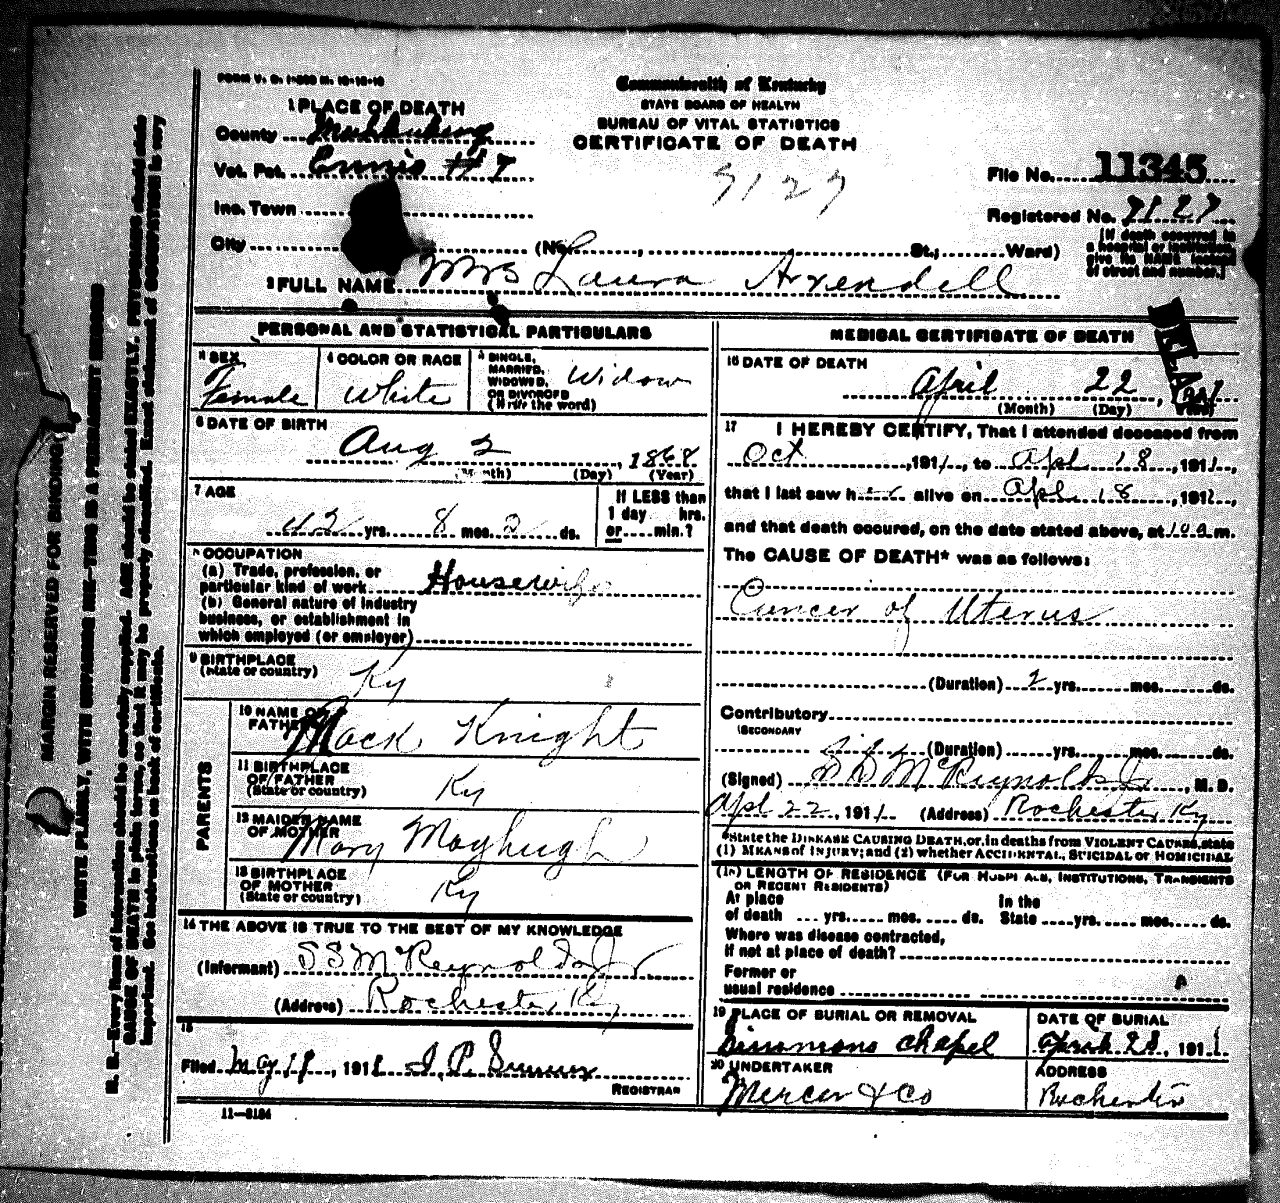 FORM V. S. 1-
Commonwealth of Kentucky
STATE BOARD OF HEALTH
BUREAU OF VITAL STATISTICS
CERTIFICATE OF DEATH
1 PLACE OF DEATH
County Muhlenberg
Vot. Pct. Ennis #7
Inc. Town
City (No. , St.; Ward)
7127
File No. 11345
Registered No. 7127
[If death occurred in a hospital or institution, give its NAME instead of street and number.]
2 FULL NAME Mrs Laura Arendell
PERSONAL AND STATISTICAL PARTICULARS
3 SEX Female
4 COLOR OR RACE White
5 SINGLE, MARRIED, WIDOWED, OR DIVORCED (Write the word) Widow
6 DATE OF BIRTH
Aug 2, 1868
(Month) (Day) (Year)
7 AGE
42 yrs. 8 mos. 2 ds.
If LESS than 1 day hrs. or min.?
8 OCCUPATION
(a) Trade, profession, or
particular kind of work Housewife
(b) General nature of industry
business, or establishment in
which employed (or employer)
9 BIRTHPLACE
(State or country) Ky
PARENTS
10 NAME OF
FATHER Mack Knight
11 BIRTHPLACE
OF FATHER
(State or country) Ky
12 MAIDEN NAME
OF MOTHER Mary Mayhugh
13 BIRTHPLACE
OF MOTHER
(State or country) Ky
14 THE ABOVE IS TRUE TO THE BEST OF MY KNOWLEDGE
(Informant) S S McReynolds Jr
(Address) Rochester, Ky
15
Filed May 19, 1911 J. P.
REGISTRAR
11-3184
MEDICAL CERTIFICATE OF DEATH
16 DATE OF DEATH
April 22, 1911
(Month) (Day) (Year)
17 I HEREBY CERTIFY, That I attended deceased from
Oct, 1911, to Apl 18, 1911,
that I last saw h alive on Apl 18, 1911,
and that death occured, on the date stated above, at 10 a m.
The CAUSE OF DEATH* was as follows:
Cancer of Uterus
(Duration) 2 yrs. mos. ds.
Contributory
(SECONDARY
(Duration) yrs. mos. ds.
(Signed) S S McReynolds Jr, M. D.
Apl 22, 1911 (Address) Rochester, Ky
*State the DISEASE CAUSING DEATH, or, in deaths from VIOLENT CAUSES, state
(1) MEANS of INJURY; and (2) whether ACCIDENTAL, SUICIDAL or HOMICIDAL
(18) LENGTH OF RESIDENCE (FOR HOSPITALS, INSTITUTIONS, TRANSIENTS
OR RECENT RESIDENTS)
At place In the
of death yrs. mos. ds. State yrs. mos. ds.
Where was disease contracted,
if not at place of death?
Former or
usual residence
19 PLACE OF BURIAL OR REMOVAL
Simmons Chapel
DATE OF BURIAL
April 23, 1911
20 UNDERTAKER
Mercer & Co
ADDRESS
Rochester
MARGIN RESERVED FOR BINDING
WRITE PLAINLY, WITH UNFADING INK—THIS IS A PERMANENT RECORD
N. B.—Every item of information should be carefully supplied. AGE should be stated EXACTLY. PHYSICIANS should state
CAUSE OF DEATH in plain terms, so that it may be properly classified. Exact statement of OCCUPATION is very
important. See instructions on back of certificate.